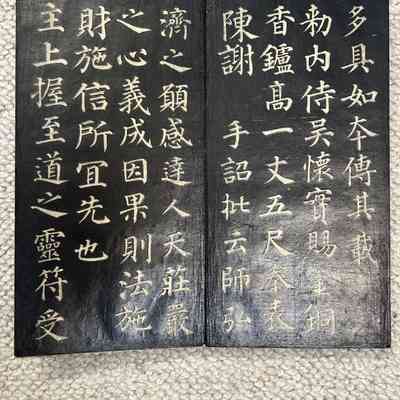 多具如夲傳其載
勑内侍吳懷實賜金銅
香鑪高一丈五尺奉表
陳謝 手詔批云師弘
濟之願感達人天莊嚴
之心義成因果則法施
財施信所冝先也
主上握至道之靈符受